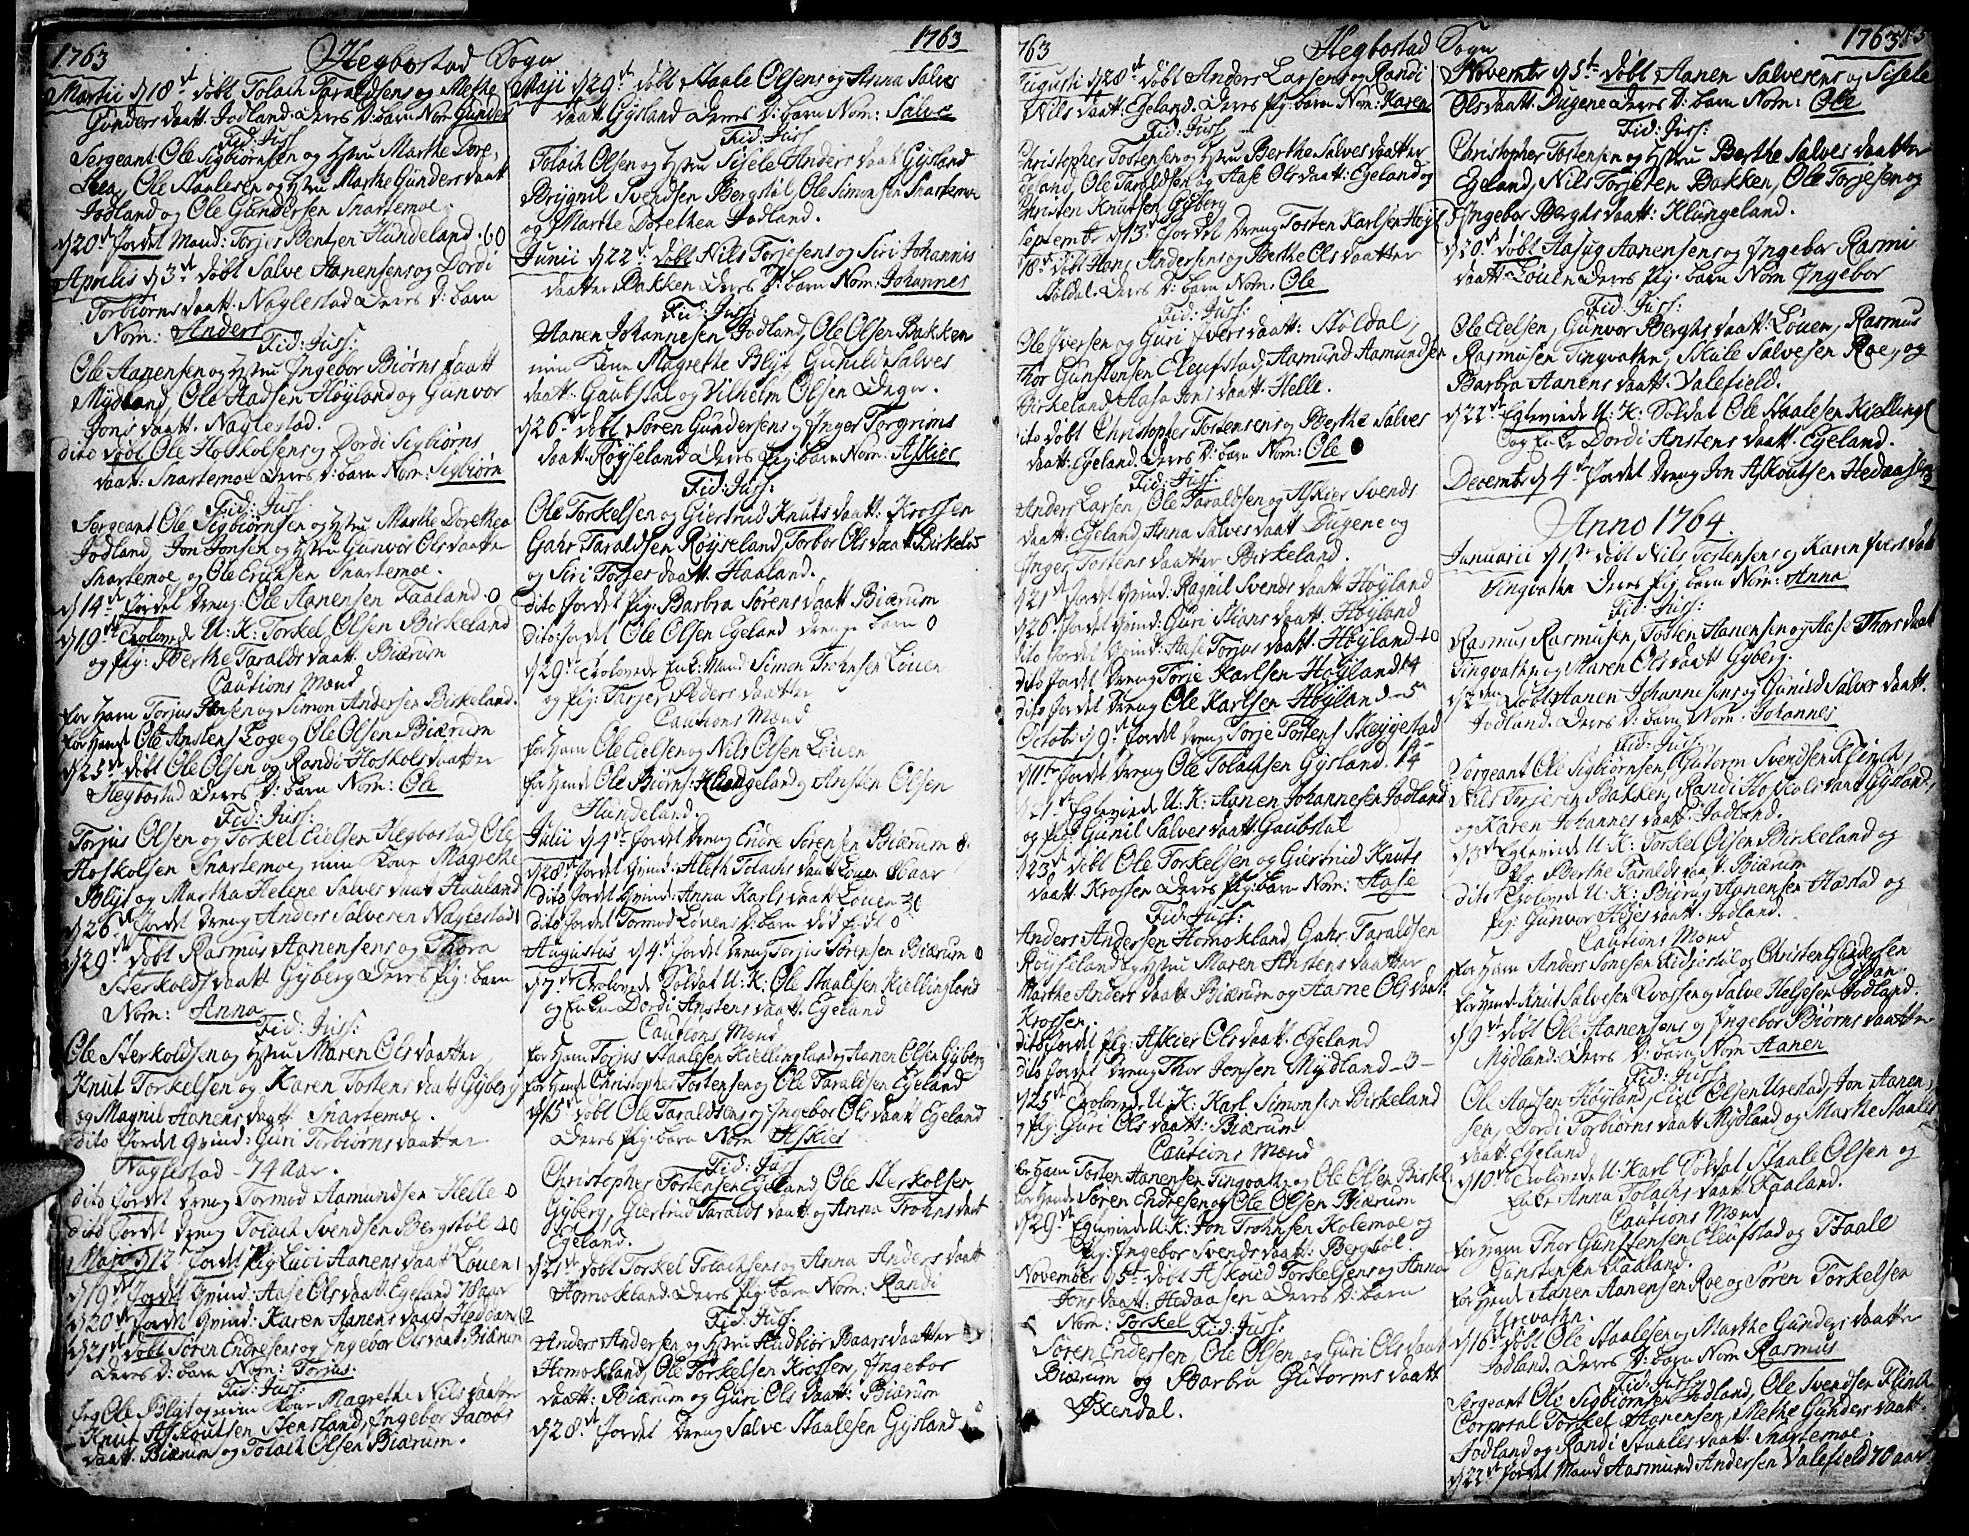 1763
Hegbostad Sogn
1763
Martii d 18de døbt Tolach Taraldsens og Methe
Gunders daatt: Jodland: Deres D: barn Nom: Gunder
Fid: Juss:
Sergeant Ole Sigbiørnsen og Hstru Marthe Dore,
Ole Staalesen og Hstru Marthe Gunders daatt
Jodland og Ole Gundersen Snartemoe.
d 20de Jordet Mand: Torjes Bentsen Hundeland: 60
Aprilis d 3de døbt Salve Aanensens og Dordi
Torbiørns daatt: Naglestad Deres D: barn
Nom: Anders
Fid: Juss:
Ole Aanensen og Hstru Ingebor Biørns daatt
Mydland, Ole Aadsen Høyland og Gunvor
Jons daatt: Naglestad.
dito døbt Ole Hoskolsens og Dordi Sigbiørns
daatt: Snartemoe Deres D: barn Nom: Sigbiørn
Fid: Juss:
Sergeant Ole Sigbiørnsen og Hstru Marthe Dorethea
Jodland, Jon Jonsen og Hstru Gunvor Ols daatter
Snartemoe, og Ole Erichsen Snartemoe.
d 14de Jordet Dreng: Ole Aanensen Faaland: 0
d 19de Trolovede U: K: Torkel Olsen Birkeland
og Pig: Berthe Taralds daatt: Biærum
Cautions Mænd
for Ham Torjus Olsen og Simon Andersen Birkeland.
for Hende Ole Anstens Log og Ole Olsen Biærum
d 25de døbt Ole Olsen og Randi Hoskols daatter
Hegbostad Deres D: barn Nom: Ole
Fid: Juss:
Torjus Olsen og Torkel Eielsen Hegbostad, Ole
Hoskolsen Snartemoe, min Kone Magrethe
Blijt og Martha Helene Salves daatt Haaland
d 26de Jordet Dreng Anders Salvesen Naglestad 1
d 29de døbt Rasmus Aanensens og Thora
Sterkolds daatt Gyberg Deres Pig: barn
Nom: Anna
Fid: Juss:
Ole Sterkoldsen og Hstru Maren Ols daatter,
Knut Torkelsen og Karen Tostens daatt Gyberg
og Magnil Aanens daatt Snartemoe.
dito Jordet Qvind: Guri Torbiørns daatter
Naglestad - 74 aar.
dito Jordet Dreng Tormod Aamundsen Helle 0
dito Jordet Dreng Tolach Svendsen Bergstøl 40
Maji d 12de Jordet Pig Luci Aanens daatt Løuen 1
d 19de Jordet Qvind: Aase Ols daatt: Egeland 78 aar
d 20de Jordet Qvind: Karen Aanens daatt
d 21de døbt Søren Endresens og Ingebor Ols daatt: Biærum
Deres D: barn Nom: Torjus.
Fid: Juss:
Jeg Ole Blijt og min Kone Magrethe Nils daatter
Knut Askoutsen Stensland, Ingebor Jacobs
daatt: Biærum og Tolach Olsen Biærum.
Maji d 29de døbt Staale Olsens og Anna Salves
daatt: Gysland Deres D: barn Nom: Salve
Fid: Juss
Tolach Olsen og Hstru Sisele Anders daatt Gysland
Brignil Svendsen Bergstøl, Ole Simonsen Snartemoe
og Marthe Dorethea Jodland.
Junii d 22de døbt Nils Torjesens og Siri Johannis
daatter Bakken Deres D: barn Nom: Johannes
Fid: Juss:
Aanen Johannesen Jodland, Ole Olsen Bakken
min Kone Magrethe Blijt Gunild Salves
daatt: Gaubstøl og Vilhelm Olsen Degn.
d 26de døbt Søren Gundersens og Inger Torgrims
daatt: Røyseland Deres Pig: barn Nom: Askier
Fid: Juss:
Ole Torkelsen og Giertrud Knuts daatt: Krossen
Gahr Taraldsen Røyseland, Torbor Ols daatt Birkeld:
og Siri Torjes daatt: Haaland.
dito Jordet Pig: Barbra Sørens daatt Biærum
dito: Jordet Ole Olsen Egeland drenge barn 0
d 29de Trolovede Enke Mand Simon Trohnsen Løuen
og Pig: Tirjer Peders daatter
Cautions Mænd
for Ham Ole Eielsen og Nils Olsen Løuen
for Hende Ole Biørns: Klungeland og Ansten Olsen
Hundeland.
Julii d 4de Jordet Dreng Endre Sørensen Biærum 8.
d 28de Jordet Qvind: Aleth Tolachs daatt Løuen 80 aar
dito Jordet Qvind: Anna Karls daatt Løuen 30
dito Jordet Tormod Løuens D: barn død født 0
Augustus d 4de Jordet Dreng Torjus Sørensen Biærum 0
d 7de Trolovede Soldat U: K: Ole Staalesen Kiellingland
og Enke Dordi Anstens daatt: Egeland
Cautions Mænd
for Ham Torjus Staalesen Kiellingland og Aanen Olsen Gyberg
for Hende Christopher Tostensen og Ole Taraldsen Egeland
d 15de døbt Ole Taraldsens og Ingebor Ols daatt Egeland
Deres Pig: barn Nom: Askier
Fid: Juss
Christopher Tostensen Egeland, Ole Sterkolsen
Gyberg, Giertrud Taralds daatt og Anna Trohns daatt
Egeland.
d 21de døbt Torkel Tolachsens og Anna Anders daatt
Homokland. Deres Pig: barn Nom: Randi
Fid: Juss:
Anders Andersen og Hstru Gudbiør Baars daatter
Homokland, Ole Torkelsen Krossen, Ingebor
daatt: Biærum og Guri Ols daatt: Biærum
d 28de Jordet Dreng Salve Staalesen Gysland
763
Hegbostad Sogn
1763
Augusti d 28de døbt Anders Larsens og Randi
Nils daatt: Egeland. Deres Pig: barn Nom: Karen
Fid: Juss
Christopher Tostensen og Hstru Berthe Salves daatter
Egeland, Ole Taraldsen og Aase Ols daatt: Egeland og
Christen Knutsen Gyberg
Septembr d 13de Jordet Dreng Tosten Karlsen Høyl
18de døbt Hans Andersens og Berthe Ols daatter
Støldal. Deres D: barn Nom: Ole
Fid: Juss:
Ole Iversen og Guri Ivers daatt: Støldal,
Thor Gunstensen Eleufstad, Aamund Aamundsen
Birkeland, Aasa Jons daatt: Helle.
dito døbt Christopher Tostensens og Berthe Salves
daatt: Egeland. Deres D: barn Nom: Ole
Fid: Juss:
Anders Larsen, Ole Taraldsen og Askier Svends
daatt: Egeland, Anna Salves daatt Dugene og
Inger Tostens daatter Birkeland.
d 21de Jordet Qvind: Ragnil Svends daatt Høyland
d 26de Jordet Qvind: Guri Stians daatt: Høyland
dito Jordet Qvind: Aase Torjus daatt: Høyland 40
dito Jordet Dreng Torje Karlsen Høyland 14
dito Jordet Dreng Ole Karlsen Høyland - 5
Octobr d 9de Jordet Dreng Torje Tostens Skeggestad
d 11te Jordet Dreng Ole Tolachsen Gysland 14
Egteviede U: K: Aanen Johannesen Jodland
og Pig: Gunil Salves daatt: Gaubstøl
d 23de døbt Ole Torkelsen og Giertrud Knuts
daatt: Krossen Deres Pig: barn Nom: Aase
Fid: Juss:
Anders Andersen Homokland, Gahr Taraldsen
Røyseland og Hstru Maren Anstens daatter
Marthe Anders daatt Biærum og Aasne Ols daatt
Krossen.
dito Jordet Pig: Askier Ols daatt: Egeland
dito Jordet Dreng Thor Jonsen Mydland - 3 -
d 25de Trolovede U: K: Karl Simonsen Birkeland
Pig: Guri Ols daatt: Biærum
Cautions Mænd
for Ham Tosten Aanensen Tingvatn, og Ole Olsen Birkel:
for Hende Søren Endresen og Ole Olsen Biærum
d 29de Egteviede U: K: Jon Trohnsen Kolemoe og
Pig: Ingebor Svends daatt: Bergstøl.
November d 5te døbt Askoud Torkelsens og Anna
Jons daatt: Hedaasen Deres D: barn
Nom: Torkel
Fid: Juss:
Søren Endersen, Ole Olsen og Guri Ols daatt
Biærum og Barbra Gutorms daatt
Øxendal.
Novembr d 5te døbt Aanen Salvesens og Sisele
Ols daatt: Dugene Deres D: barn Nom: Ole
Fid: Juss:
Christopher Tostensen og Hstru Berthe Salves daatter
Egeland, Nils Torjesen Bakken, Ole Torjesen og
Ingebor Berghs daatt: Klungeland.
d 20de døbt Aasug Aanensens og Ingebor Rasmi
daatt: Løuen Deres Pig: barn Nom Ingebor
Fid: Juss:
Ole Eielsen, Gunvor Berghs daatt: Løuen, Rasmus
Rasmusen Tingvatn, Skule Salvesen Roe, og
Barbra Aanens daatt: Valefield.
d 22de Egteviede U: K: Soldat Ole Staalesen Kiellingl
og Enke Dordi Anstens daatt: Egeland.
Decembr d 4de Jordet Dreng Jon Askoutsen Hedaas
Anno 1764.
Januarii d 1ste døbt Nils Tostensens og Karen Ivers daat
Tingvatn Deres Pig: barn Nom: Anna
Fid: Juss:
Rasmus Rasmusen, Tosten Aanensen og Aase Thors daatt
Tingvatn, og Maren Ols daatt Gyberg.
døbt Aanen Johannesens og Gunild Salves daatt:
Jodland: Deres D: barn Nom: Johannes
Fid: Juss:
Sergeant Ole Sigbiørnsen, Gutorm Svendsen Flinch,
Nils Torjesen Bakken, Randi Hoskols daatt Gysland,
og Karen Johannes daatt: Jodland.
d 3de Egteviede U: K: Torkel Olsen Birkeland og
Pig: Berthe Taralds daatt: Biærum
dito Trolovede U: K: Biørn Aanensen Hobstad og
Pig: Gunvor Heljes daatt: Jodland.
Cautions Mænd
for Ham Anders Sonesen og Christen Gundersen
for Hende Knut Salvesen Krossen og Salve Heljesen Jodland
d 9de døbt Ole Aanensens og Ingebor Biørns daatter
Mydland: Deres D: barn Nom Aanen
Fid: Juss:
Ole Aadsen Høyland, Eiel Olsen Urestad, Jon Aanen
sen, Dordi Torbiørns daatt Mydland og Marthe Staales
daatt: Egeland
d 10de Trolovede U: Karl Soldat Staale Olsen og
Enke Anna Tolachs daatt: Faaland.
Cautions Mænd
for Ham Thor Gunstensen Eleufstad og Staale
Gunstensen Rakland.
for Hende Aanen Aanensen Roe og Søren Torkelsen
Urevatn.
d 16de døbt Ole Staalesens og Marthe Gunders daatter
Jodland. Deres D: barn Nom: Rasmus
Fid: Juss:
Sergeant Ole Sigbiørnsen Jodland, Ole Svendsen Flinth
Corporal Torkel Aanensen, Methe Gunders daatt:
Jodland og Randi Staales daatt: Snartemoe.
d 22de Jordet Mand Aasmund Andersen Valefield 70 aar